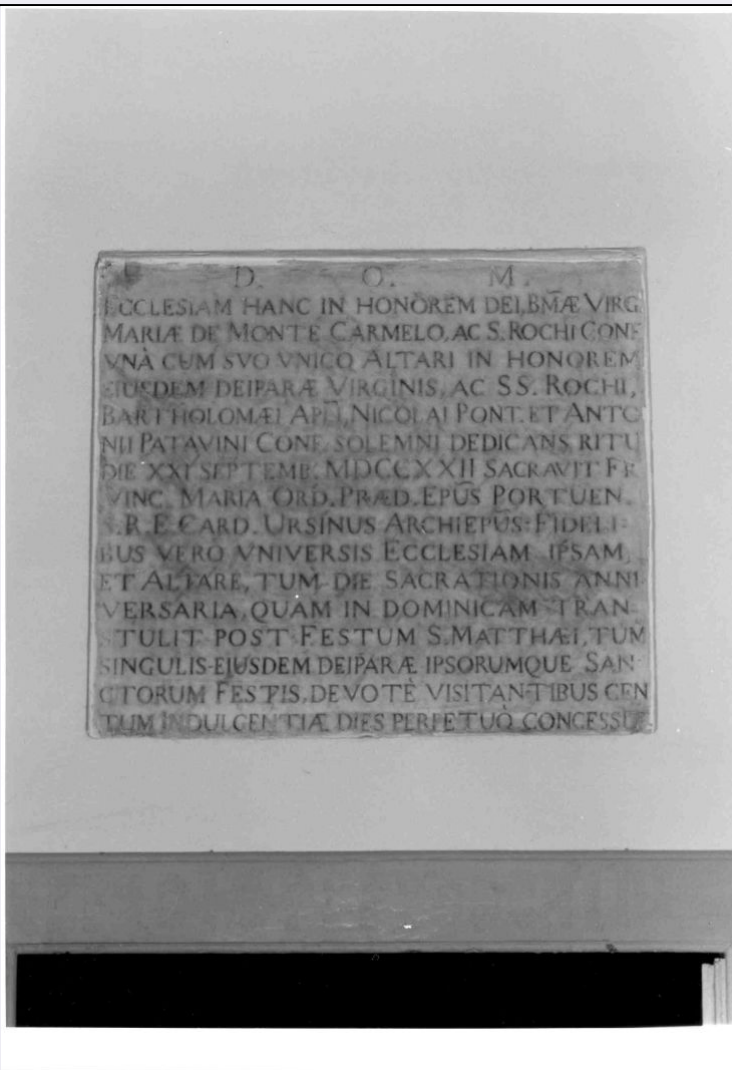 D. O. M.
ECCLESIAM HANC IN HONOREM DEI, BM̄Æ VIRG
MARIÆ DE MONTE CARMELO, AC S. ROCHI CONF
VNÀ CUM SVO VNICO ALTARI IN HONOREM
EIUSDEM DEIPARÆ VIRGINIS, AC SS. ROCHI,
BARTHOLOMÆI APLI, NICOLAI PONT. ET ANTO
NII PATAVINI CONF. SOLEMNI DEDICANS RITU
DIE XXI SEPTEMB. MDCCXXII SACRAVIT FR
VINC. MARIA ORD. PRÆD. EPUS PORTUEN.
S. R. E. CARD. URSINUS ARCHIEPUS: FIDELI
BUS VERO VNIVERSIS ECCLESIAM IPSAM,
ET ALTARE, TUM DIE SACRATIONIS ANNI
VERSARIA, QUAM IN DOMINICAM TRAN
STULIT POST FESTUM S. MATTHÆI, TUM
SINGULIS EJUSDEM DEIPARÆ IPSORUMQUE SAN
CTORUM FESTIS, DEVOTÈ VISITANTIBUS CEN
TUM INDULGENTIÆ DIES PERPETUÒ CONCESSIT